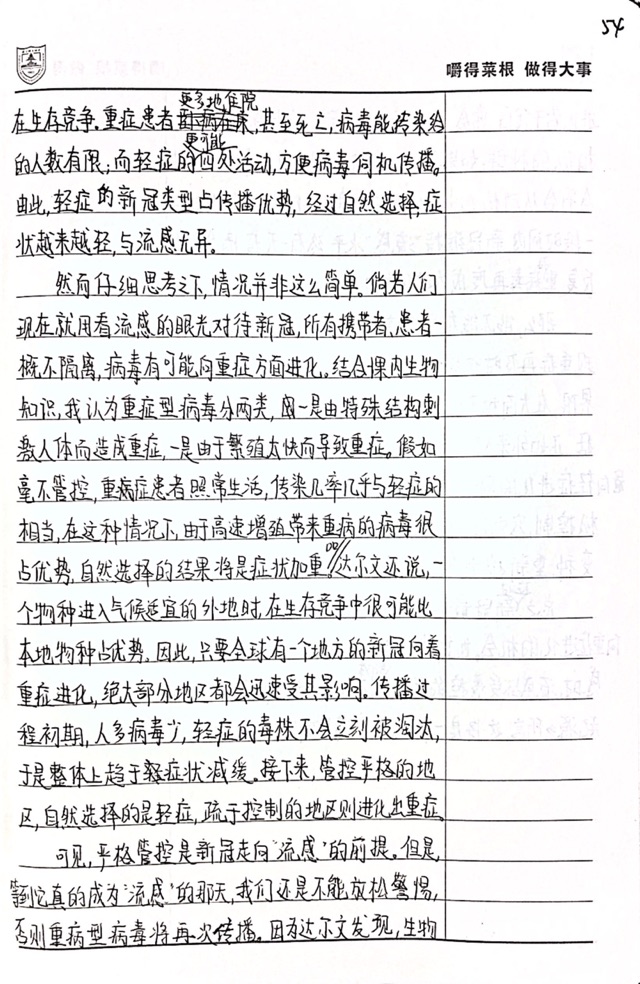 54
嚼得菜根 做得大事
更多地住院
在生存竞争。重症患者卧病在床,甚至死亡,病毒能传染给
更可能
的人数有限;而轻症的四处活动,方便病毒伺机传播。
由此,轻症的新冠类型占传播优势,经过自然选择,症
状越来越轻,与流感无异。
然而仔细思考之下,情况并非这么简单。倘若人们
现在就用看流感的眼光对待新冠,所有携带者、患者一
概不隔离,病毒有可能向重症方面进化。结合课内生物
知识,我认为重症型病毒分两类,一是由特殊结构刺
激人体而造成重症,一是由于繁殖太快而导致重症。假如
毫不管控,重症患者照常生活,传染几率几乎与轻症的
相当,在这种情况下,由于高速增殖带来重病的病毒很
占优势,自然选择的结果将是症状加重。//达尔文还说,一
个物种进入气候适宜的外地时,在生存竞争中很可能比
本地物种占优势。因此,只要全球有一个地方的新冠向着
重症进化,绝大部分地区都会迅速受其影响。传播过
程初期,人多病毒少,轻症的毒株不会立刻被淘汰,
于是整体上趋于症状减缓。接下来,管控严格的地
区,自然选择的是轻症,疏于控制的地区则进化出重症。
可见,严格管控是新冠走向“流感”的前提。但是,
等到它真的成为“流感”的那天,我们还是不能放松警惕,
否则重病型病毒将再次传播。因为达尔文发现,生物